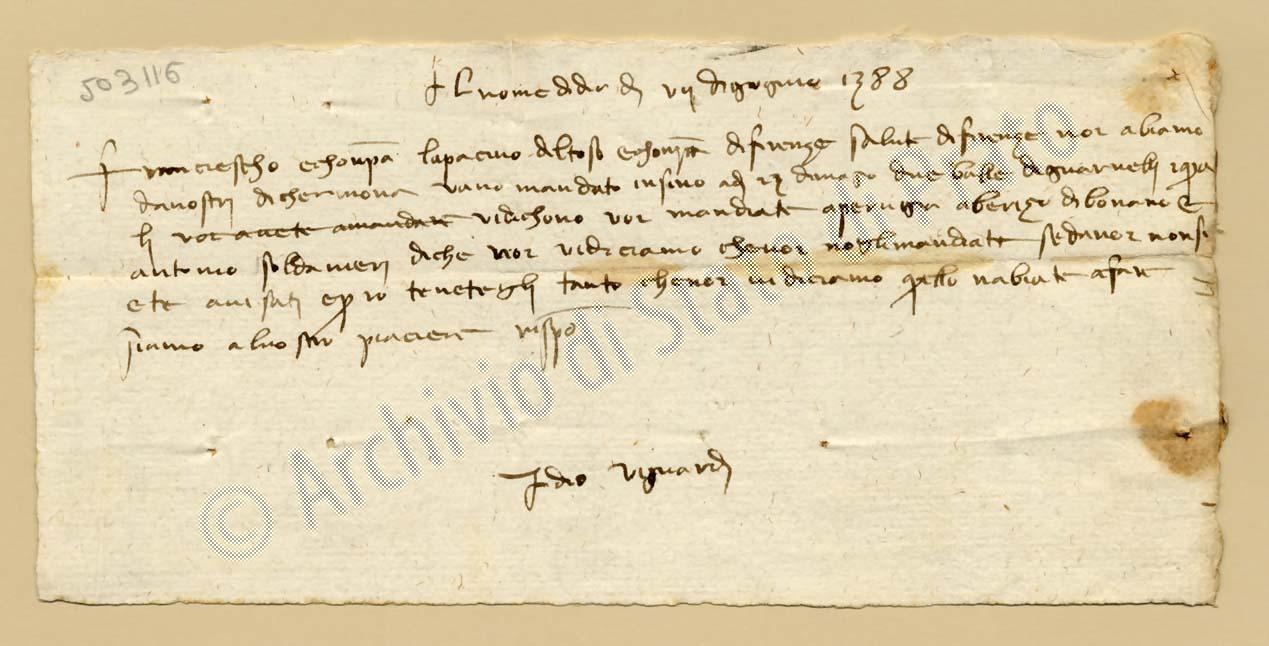 503116
† Al nome di dio dì vij di gugnio 1388
Franciescho e chonpa Lapaccino del Toso e chonpa di firenze salute di firenze noi abiamo
da nostri di chermona vano mandato insino a dì di magio due balle di guarnelli i qua
li voi avete a mandare vi dichono voi mandiate a perugia a berizo di bonano e
antonio soldanieri di che noi vi diciamo che voi no gli mandiate se da noi non si
ete avisati e però tenetegli tanto che noi vi diciamo quello n abiate a fare
siamo al vostro piaciere rispo
Idio vi guardi
© Archivio di Stato di Prato